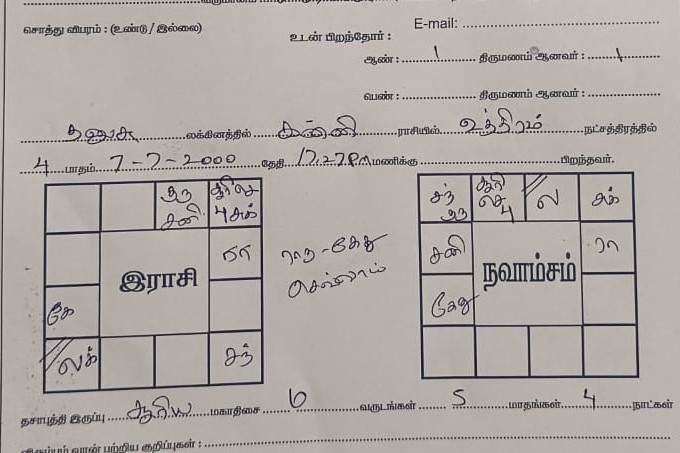 சொத்து விபரம் : (உண்டு / இல்லை)
E-mail:
உடன் பிறந்தோர் :
ஆண் : 1 திருமணம் ஆனவர் : 1
பெண் : திருமணம் ஆனவர் :
தனுசு லக்கினத்தில் கன்னி ராசியில் உத்திரம் நட்சத்திரத்தில்
4 பாதம் 7-7-2000 தேதி மணிக்கு பிறந்தவர்.
குரு சனி
சூரி செ 4 சுக்
ரா
இராசி
கே
லக்
சந்
ராகு - கேது
செவ்வாய்
சந் குரு
சூரி செ 4
ல
சுக்
சனி
ரா
நவாம்சம்
கேது
தசாபுத்தி இருப்பு சூரிய மகாதிசை 6 வருடங்கள் 5 மாதங்கள் 4 நாட்கள்
பற்றிய குறிப்புகள் :